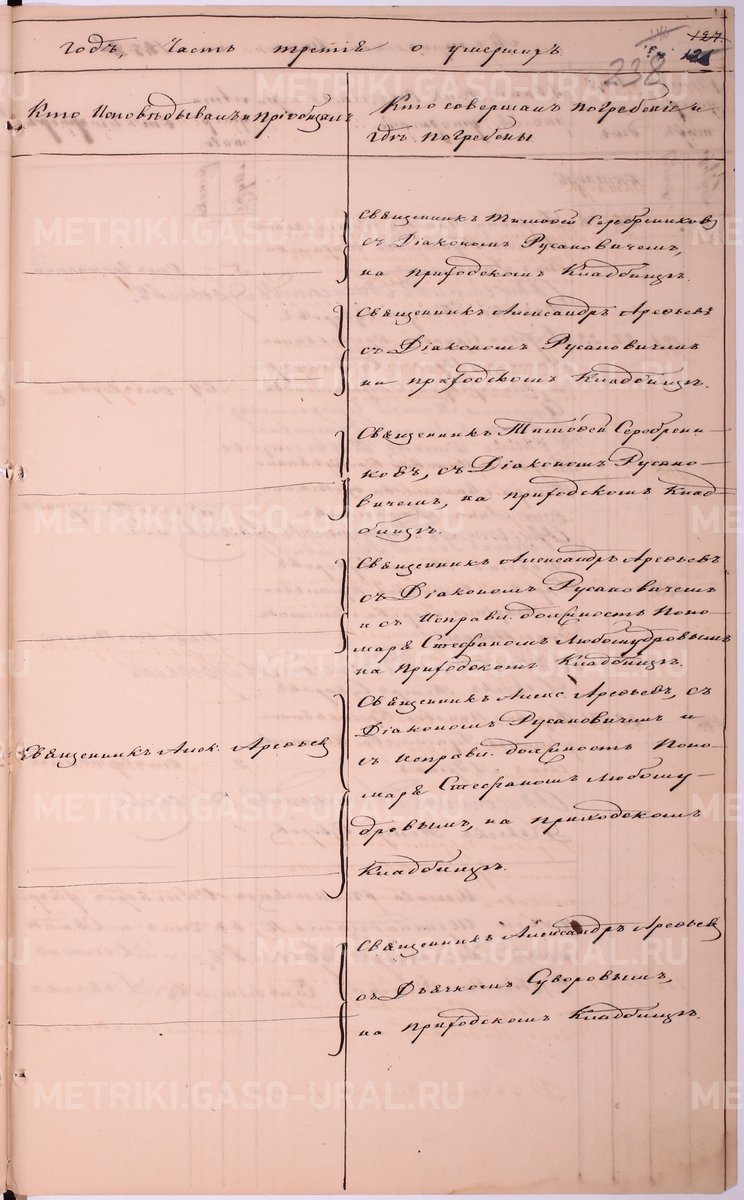 годъ, Часть третія о умершихъ.
127.
238
126
Кто Исповѣдывалъ и Пріобщалъ
Кто совершалъ погребеніе и
гдѣ погребены
Священникъ Тимофей Серебренниковъ
съ Діакономъ Русановичемъ,
на Приходскомъ Кладбищѣ.
Священникъ Александръ Арефьевъ
съ Діакономъ Русановичемъ
на приходскомъ Кладбищѣ.
Священникъ Тимофей Серебрени-
ковъ, съ Діакономъ Русано-
вичемъ, на приходскомъ Клад-
бищѣ.
Священникъ Александръ Арефьевъ
съ Діакономъ Русановичемъ
и съ Исправл. должность Поно-
маря Стефаномъ Любомудровымъ
на Приходскомъ Кладбищѣ.
Священникъ Алек. Арефьев
Священникъ Алекс. Арефьевъ, съ
Діакономъ Русановичемъ и
съ Исправл. должность Поно-
маря Стефаномъ Любому-
дровымъ, на Приходскомъ
Кладбищѣ.
Священникъ Александръ Арефьев
съ Дьячкомъ Суворовымъ,
на Приходскомъ Кладбищѣ.
METRIKI.GASO-URAL.RU